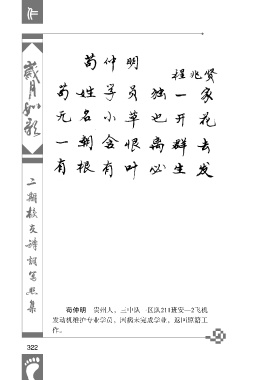 岁月如歌
二期校友诗词写照集
苟仲明
程兆贤
苟姓学员独一家
无名小草也开花
一朝含恨离群去
有根有叶必生发
苟仲明 贵州人。三中队一区队211班安—2飞机
发动机维护专业学员。因病未完成学业。返回原籍工
作。
322